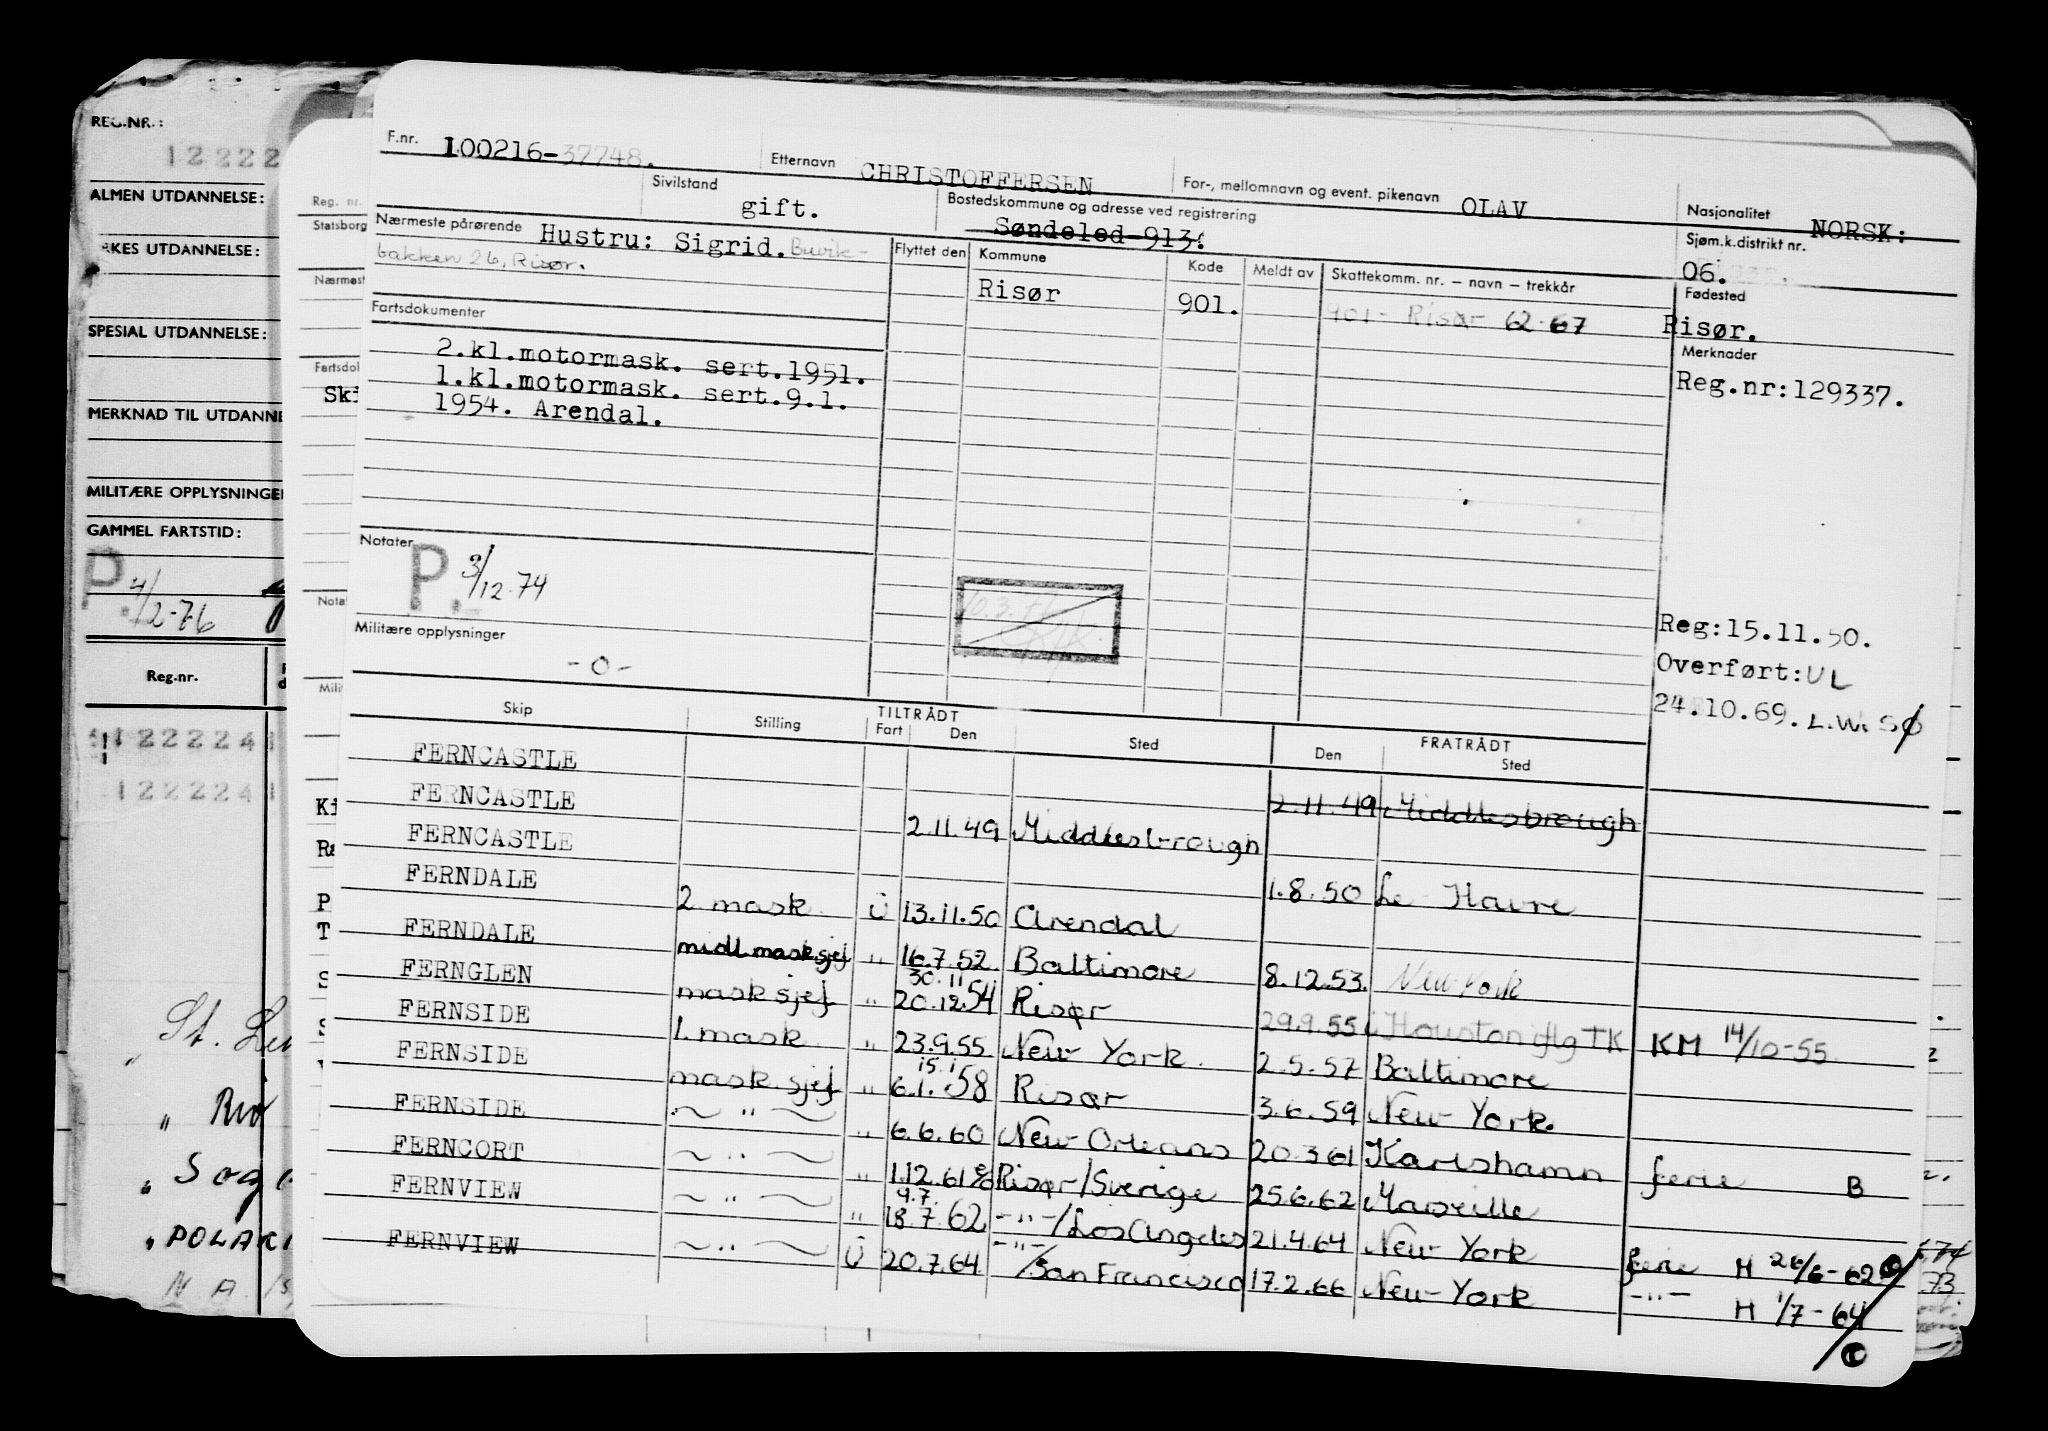 REG.NR.:
12222
ALMEN UTDANNELSE:
UTDANNELSE:
SPESIAL UTDANNELSE:
MERKNAD TIL UTDANNE
MILITÆRE OPPLYSNINGE
GAMMEL FARTSTID:
P. 4/2-76
Reg.nr.
122224
122224
St.
" Rio
" POLAR
Reg. nr.
Statsborg
Nærmest
Fartsdok
Ski
Notat
Milit
F.nr. 100216-37748. Etternavn CHRISTOFFERSEN For-, mellomnavn og event. pikenavn OLAV Nasjonalitet NORSK:
Sivilstand gift. Bostedskommune og adresse ved registrering Søndeled-913. Sjøm.k.distrikt nr. 06.
Nærmeste pårørende Hustru: Sigrid. Buvik-
bakken 26, Risør.
Flyttet den Kommune Kode Meldt av Skattekomm. nr. – navn – trekkår Fødested
Risør 901. 901 - Risør 62-67 Risør.
Fartsdokumenter Merknader
2.kl.motormask. sert.1951. Reg.nr:129337.
1.kl.motormask. sert.9.1.
1954. Arendal.
Notater P. 3/12-74
Reg:15.11.50.
Militære opplysninger Overført: UL
-0- 24.10.69. L.W. SØ
Skip Stilling TILTRÅDT Fart Den Sted FRATRÅDT Den Sted
FERNCASTLE 2.11.49 Middlesbrough
FERNCASTLE 2.11.49 Middlesbrough
FERNCASTLE 1.8.50 Le Havre
FERNDALE 2 mask. U 13.11.50 Arendal
FERNDALE midl mask.sjef " 16.7.52 Baltimore 8.12.53. New York
FERNGLEN mask sjef " 30.11 20.12.54 Risør 29.9.55 Houston TK KM 14/10-55
FERNSIDE 1. mask. " 23.9.55 New York. 2.5.57 Baltimore
FERNSIDE mask. sjef " 15.1 6.1.58 Risør 3.6.59 New York.
FERNSIDE ~ " ~ " 6.6.60 New Orleans 20.3.61 Karlshamn ferie B
FERNCORT ~ " ~ " 1.12.61 Risør/Sverige 25.6.62 Marseille
FERNVIEW ~ " ~ " 9.7. 18.7.62 -"-/Los Angeles 21.4.64 New York ferie H 26/6-62
FERNVIEW ~ " ~ U 20.7.64 -"-/San Francisco 17.2.66 New York -"- H 1/7-64